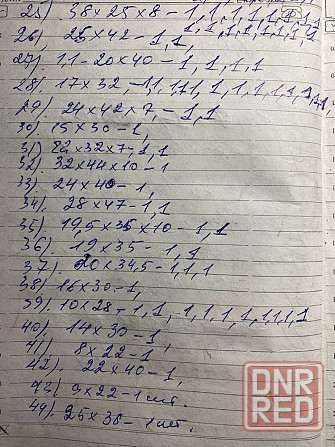 25) 38х25х8 – 1, 1, 1, 1, 1, 1
26). 25х42 – 1, 1,
27). 1,1 – 20х40 – 1, 1, 1, 1
28) 17х32, –1, 1, 1, 1, 1, 1, 1, 1, 1, 1, 1,
29). 24х42х7, – 1, 1
30) 15х30 – 1,
31) 22х32х7 – 1, 1
32). 32х44х10 – 1
33). 24х40 – 1,
34). 28х47 – 1, 1
35). 19,5х35х10 – 1, 1
36). 19х35 – 1, 1
37). 20х34,5 – 1, 1, 1
38) 16х30 – 1,
39). 10х28 – 1, 1, 1, 1, 1, 1, 1, 1, 1
40). 14х30 – 1
41) 8х22 – 1
42). 22х40 – 1,
43) 9х22 – 1 шт.
44). 25х38 – 1 шт.
DNR
RED